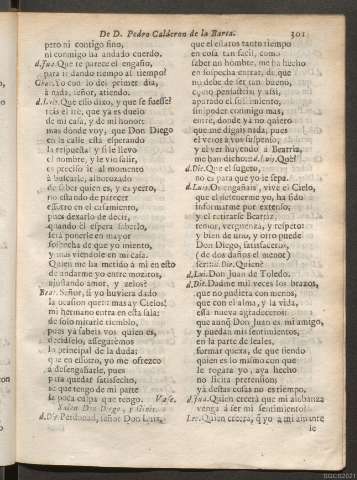 De D. Pedro Calderon de la Barca. 301
pero ni contigo fino,
ni conmigo ha andado cuerdo.
d. Jua. Que te parece el engaño,
para ir dando tiempo al tiempo?
Yo con lo del primer dia,
à nada, señor, atiendo.
d. Luis. Que esso dixo, y que se fuesse?
tràs èl irè, que ya es duelo
de mi casa, y de mi honor:
mas donde voy, que Don Diego
en la calle està esperando
la respuesta? y si le llevo
el nombre, y le viò salir,
es preciso ir al momento
à buscarle, alborozado
de saber quien es, y es yerro,
no estando de parecer
essotro en el casamiento,
pues dexarlo de decir,
quando èl espera saberlo,
serà ponerle en mayor
sospecha de que yo miento,
y mas viendole en mi casa.
Quien me ha metido à mi en esto
de andarme yo entre mozitos,
ajustando amor, y zelos?
Bea. Señor, si yo huviera dado
la ocasion quexas ay Cielos!
mi hermano entra en esta sala:
de solo mirarle tiemblo,
pues ya sabeis vos quien es,
decidselo, assegurèmos
lo principal de la duda:
que en essotro, yo me ofrezco
à desengañarle, pues
para quedar satisfecho,
le que tengo de mi parte
la poca culpa que tengo. Vase.
Salen Don Diego, y Ginès.
d. Die. Perdonad, señor Don Luis,
que el esitaros tanto tiempo
en cosa tan facil, como
saber un hombre, me ha hecho
en sospecha entrar, de que
no debe de ser tan bueno,
como pensasteis; y assi,
apurado el sufrimiento,
sin poder conmigo mas,
entrè, donde ya no quiero
que me digais nada, pues
el veros à vos suspenso,
y el ver huyendo à Beatriz,
me han dicho:- d. Luis. Què?
d. Die. Que el sugeto,
no es para que yo le sepa.
d. Luis. Os engañais, vive el Cielo,
que el detenerme yo, ha sido
informarme por extenso;
y el retirarse Beatriz,
temor, verguenza, y respeto:
y bien de uno, y otro puede
Don Diego, satisfaceros,
(de dos daños el menor)
serviria. Die. Quien?
d. Lui. Don Juan de Toledo.
d. Die. Dadme mil veces los brazos,
que no pudiera con menos,
que con el alma, y la vida,
essa nueva agradeceros:
que aunq̃ Don Juan es mi amigo,
y puedan mis sentimientos,
en la parte de leales,
formar quexa, de que siendo
quien es lo mismo con que
le rogàra yo, aya hecho
no licita pretension;
ya destas cosas no es tiempo.
d. Jua. Quien creerà que mi alabanza
venga à ser mi sentimiento!
Leo. Quien creerà, q̃ yo à mi amante
le